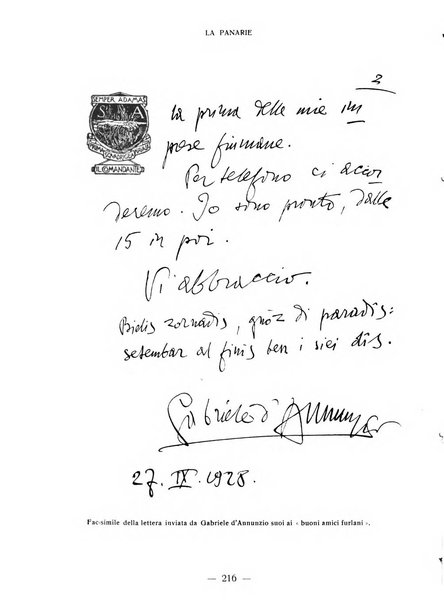 LA PANARIE
2
SEMPER ADAMAS
S A
IL COMANDANTE
la prima delle mie im
prese fiumane.
Per telefono ci accor
deremo. Io sono pronto, dalle
15 in poi.
Vi abbraccio.
Bielis zornadis, gnòz di paradîs:
setembar al finìs ben i siei dîs.
Gabriele d'Annunzio
27. IX. 1928.
Fac-simile della lettera inviata da Gabriele d'Annunzio suoi ai « buoni amici furlani ».
— 216 —